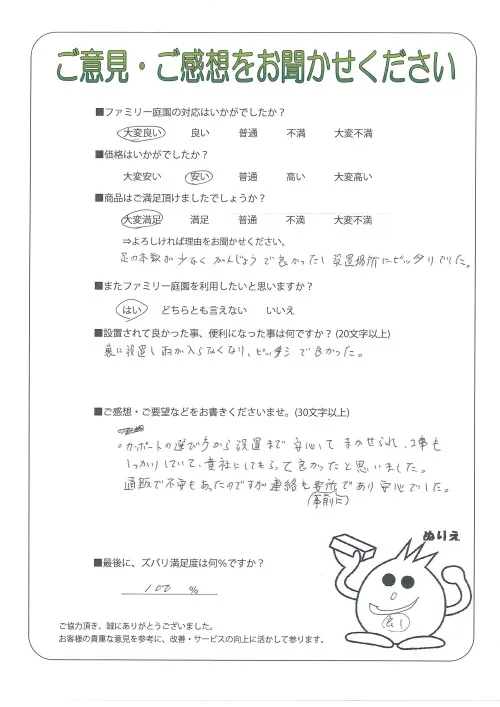 ご意見・ご感想をお聞かせください
■ファミリー庭園の対応はいかがでしたか?
大変良い 良い 普通 不満 大変不満
■価格はいかがでしたか?
大変安い 安い 普通 高い 大変高い
■商品はご満足頂けましたでしょうか?
大変満足 満足 普通 不満 大変不満
⇒よろしければ理由をお聞かせください。
足の本数が少なく がんじょうで良かったし 設置場所にピッタリでした。
■またファミリー庭園を利用したいと思いますか?
はい どちらとも言えない いいえ
■設置されて良かった事、便利になった事は何ですか? (20文字以上)
裏に設置し雨が入らなくなり、ピッタシで良かった。
■ご感想・ご要望などをお書きくださいませ。(30文字以上)
。カーポートの選び方から設置まで安心してまかせられ、工事も
しっかりしていて、貴社にしてもらって良かったと思いました。
通販で不安もあったのですが連絡も であり安心でした。
(事前に)
■最後に、ズバリ満足度は何%ですか?
100 %
ぬりえ
良し
ご協力頂き、誠にありがとうございました。
お客様の貴重な意見を参考に、改善・サービスの向上に活かして参ります。